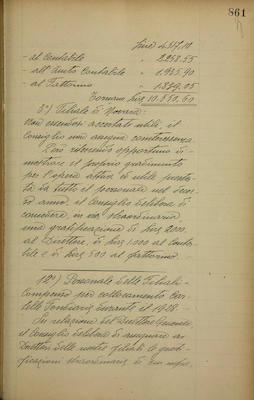 861
Lire 4517.10
- al Contabile " 2258.55
- all'Aiuto Contabile " 1935.90
- al Fattorino
Tornano Lire 10.550,60
3°) Filiale di Novara:
Non essendosi accertati utili, il
Consiglio non assegna cointeressenza.
Però ritenendo opportuno di-
mostrare il proprio gradimento
per l'opera attiva ed utile presta-
ta da tutto il personale nel decor-
so anno, il Consiglio delibera di
concedere in via straordinaria
una gratificazione di Lire 2000
al Direttore, di Lire 1000 al Conta-
bile e di Lire 500 al fattorino.
12°) Personale delle Filiali -
Compenso per collocamento Car-
telle Fondiarie durante il 1928 -
Su relazione del Direttore Generale,
il Consiglio delibera di assegnare ai
Direttori delle nostre filiali le grati-
ficazioni straordinarie di cui